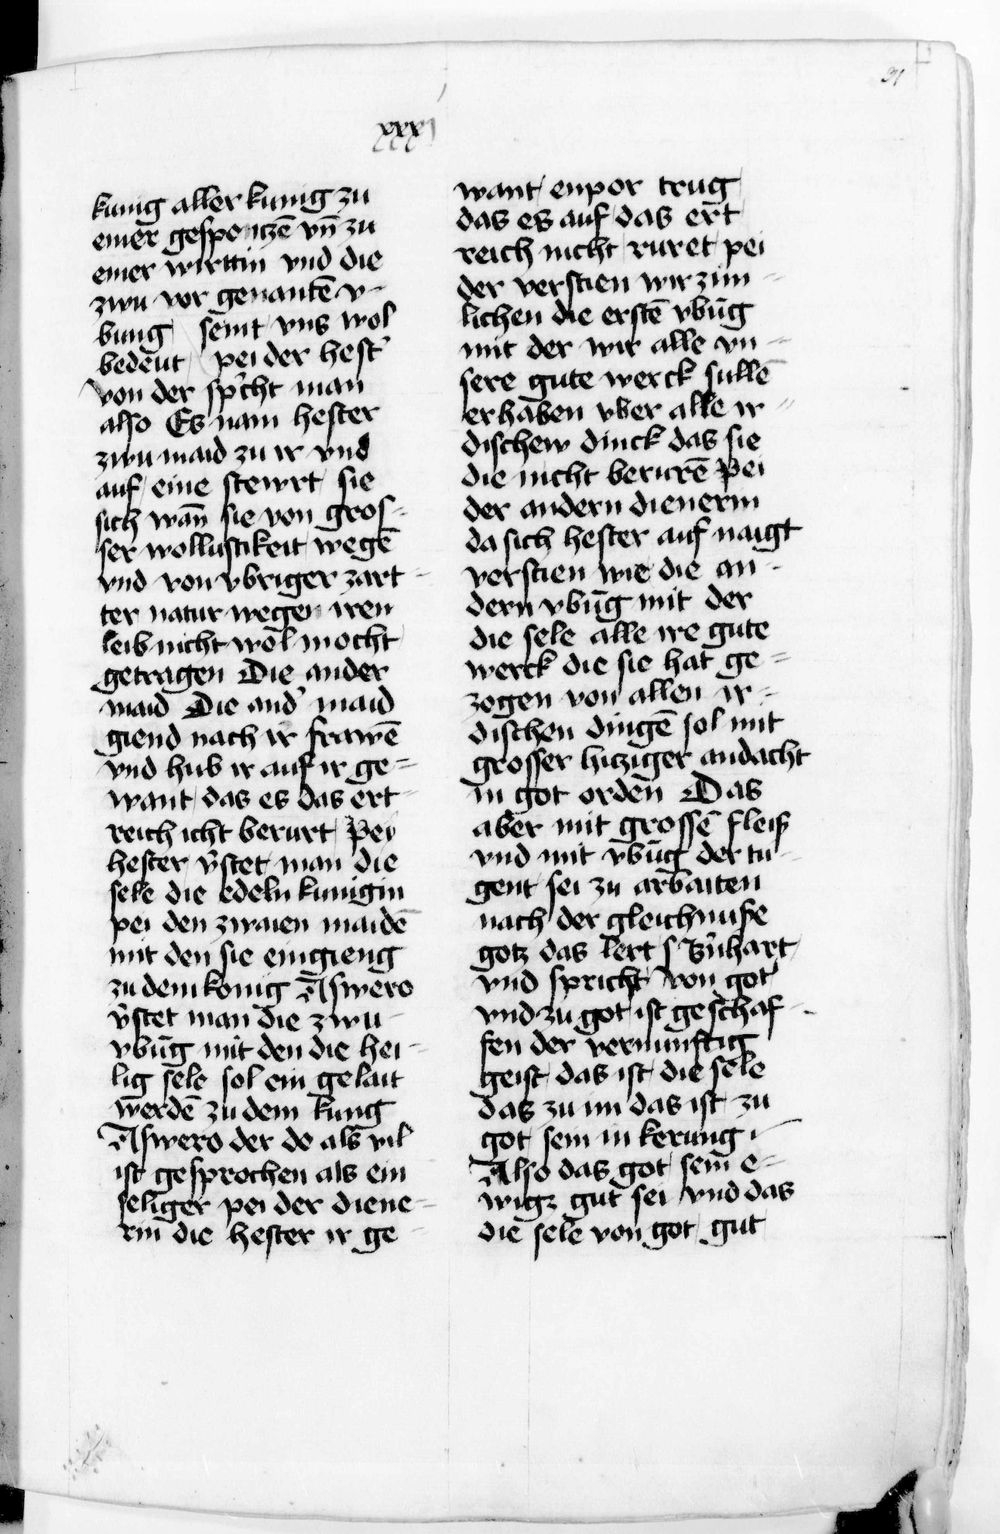 31
xxxj
kunig aller kunig zu
einer gespontzē vn̄ zu
einer wirttin vnd die
zwu vor genantē v-
bung semt vns wol
bedeut pei der hest'
von der sp'cht man
also Es nam hester
zwu maid zu ir vnd
auf eine stewrt sie
sich wan̄ sie von gros-
ser wollustikeit wegē
vnd von vbriger zart-
ter natur wegen iren
leib nicht wol mocht
getragen Die ander
maid Die and' maid
giend nach ir frawē
vnd hub ir auf ir ge=
want das es das ert-
reich icht berurt Pei
hester v'stet man die
sele die edeln kunigin
pei den zwaien maidē
mit den sie eingieng
zu dem konig Aswero
v'stet man die zwu-
vbūg mit den die hei-
lig sele sol ein gelait
werdē zu dem kung
Aswero der do als vil
ist gesprochen als ein
seliger pei der diene-
rin die hester ir ge-
want enpor trug
das es auf das ert
reich nicht ruret pei
der verstien wir zim-
lichen die erstē vbūg
mit der wir alle vn-
sere gute werck sullē
erhaben vber alle ir-
dischew dinck das sie
die nicht berurē Pei
der andern dienerin
da sich hester auf naigt
verstien wie die an-
dern vbūg mit der
die sele alle ire gute
werck die sie hat ge=
zogen von allen ir-
dischen dingē sol mit
grosser hitziger andacht
in got orden Das
aber mit grossē fleiß
vnd mit vbūg der tu-
gent sei zu arbaiten
nach der gleichnuße
gotz das lert s B'nhart
vnd spricht von got
vnd zu got ist geschaf-
fen der vernunftig
geist das ist die sele
das zu im das ist zu
got sein in kerung i
Also das got sein e-
wigz gut sei vnd das
die sele von got gut